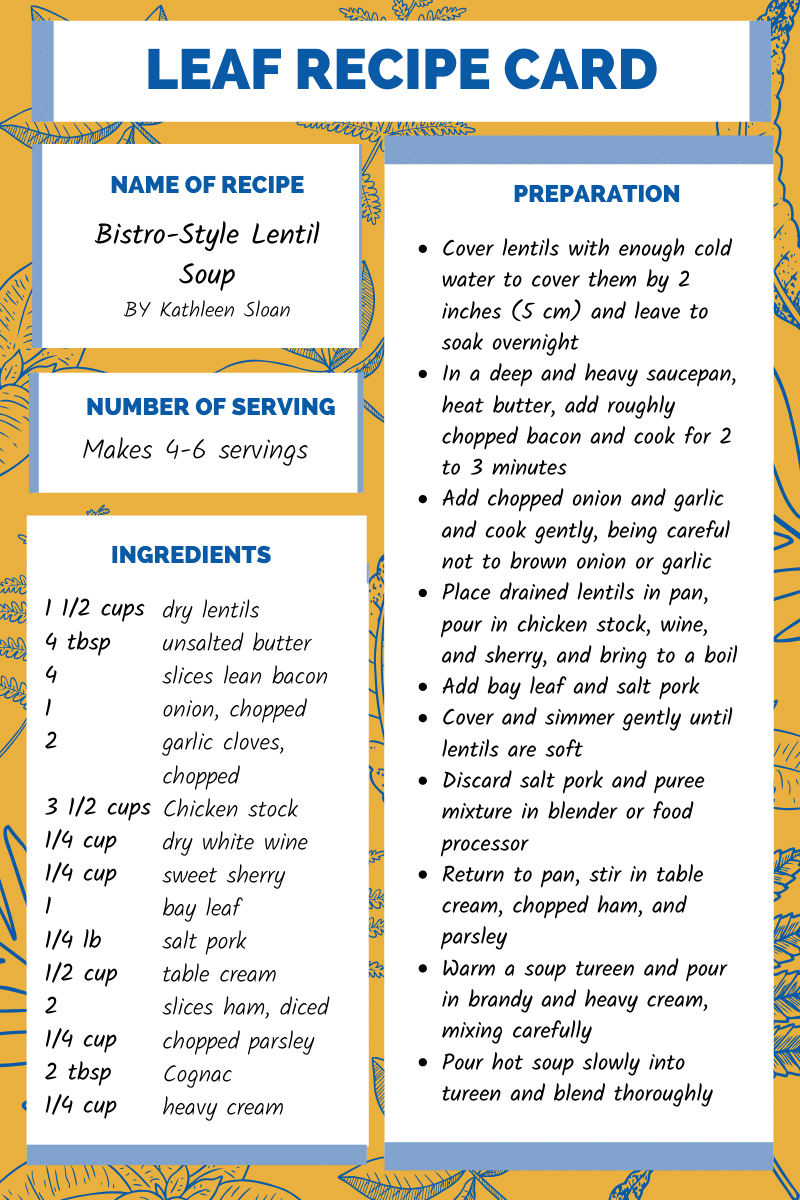 LEAF RECIPE CARD
NAME OF RECIPE
Bistro-Style Lentil
Soup
BY Kathleen Sloan
NUMBER OF SERVING
Makes 4-6 servings
INGREDIENTS
1 1/2 cups dry lentils
4 tbsp unsalted butter
4 slices lean bacon
1 onion, chopped
2 garlic cloves,
chopped
3 1/2 cups Chicken stock
1/4 cup dry white wine
1/4 cup sweet sherry
1 bay leaf
1/4 lb salt pork
1/2 cup table cream
2 slices ham, diced
1/4 cup chopped parsley
2 tbsp Cognac
1/4 cup heavy cream
PREPARATION
• Cover lentils with enough cold
water to cover them by 2
inches (5 cm) and leave to
soak overnight
• In a deep and heavy saucepan,
heat butter, add roughly
chopped bacon and cook for 2
to 3 minutes
• Add chopped onion and garlic
and cook gently, being careful
not to brown onion or garlic
• Place drained lentils in pan,
pour in chicken stock, wine,
and sherry, and bring to a boil
• Add bay leaf and salt pork
• Cover and simmer gently until
lentils are soft
• Discard salt pork and puree
mixture in blender or food
processor
• Return to pan, stir in table
cream, chopped ham, and
parsley
• Warm a soup tureen and pour
in brandy and heavy cream,
mixing carefully
• Pour hot soup slowly into
tureen and blend thoroughly